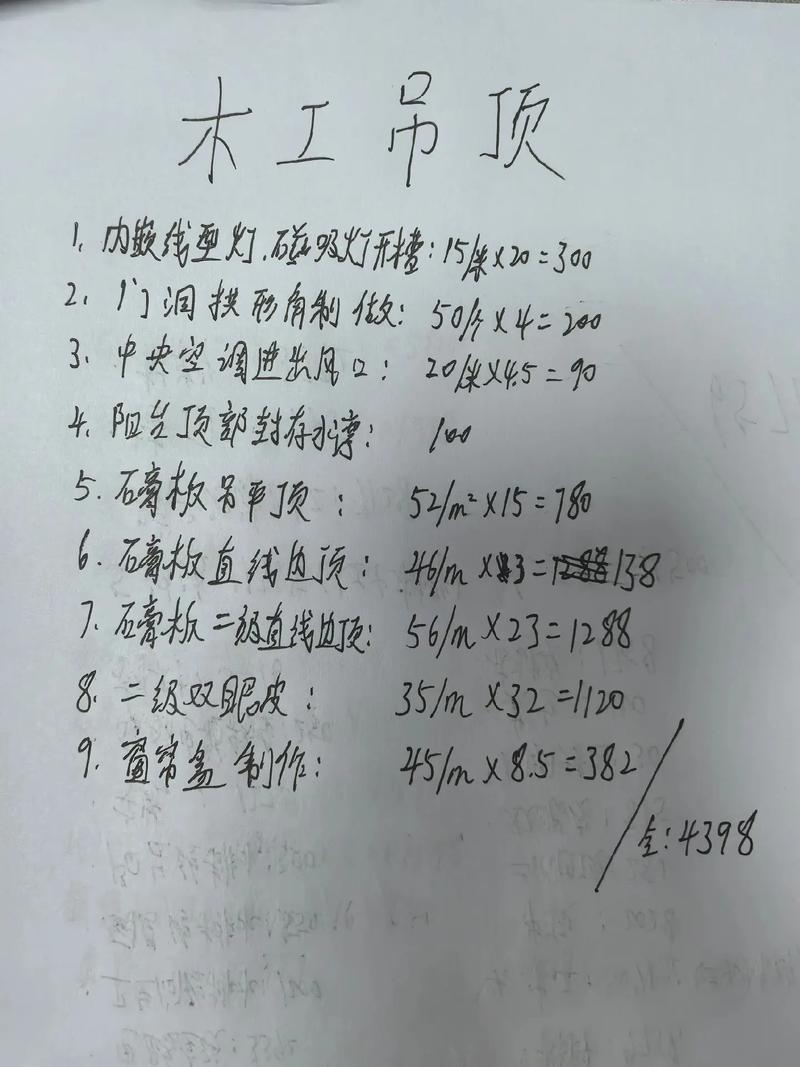 木工吊顶
1、内嵌线型灯、磁吸灯开槽：15/米×20=300
2、门洞拱形角制做：50/个×4=200
3、中央空调进出风口：20/米×4.5=90
4、阳台顶部封存水弯：100
5、石膏板吊平顶：52/m²×15=780
6、石膏板直线边顶：46/m×3=138
7、石膏板二级直线边顶：56/m×23=1288
8、二级双眼皮：35/m×32=1120
9、窗帘盒制作：45/m×8.5=382
全：4398